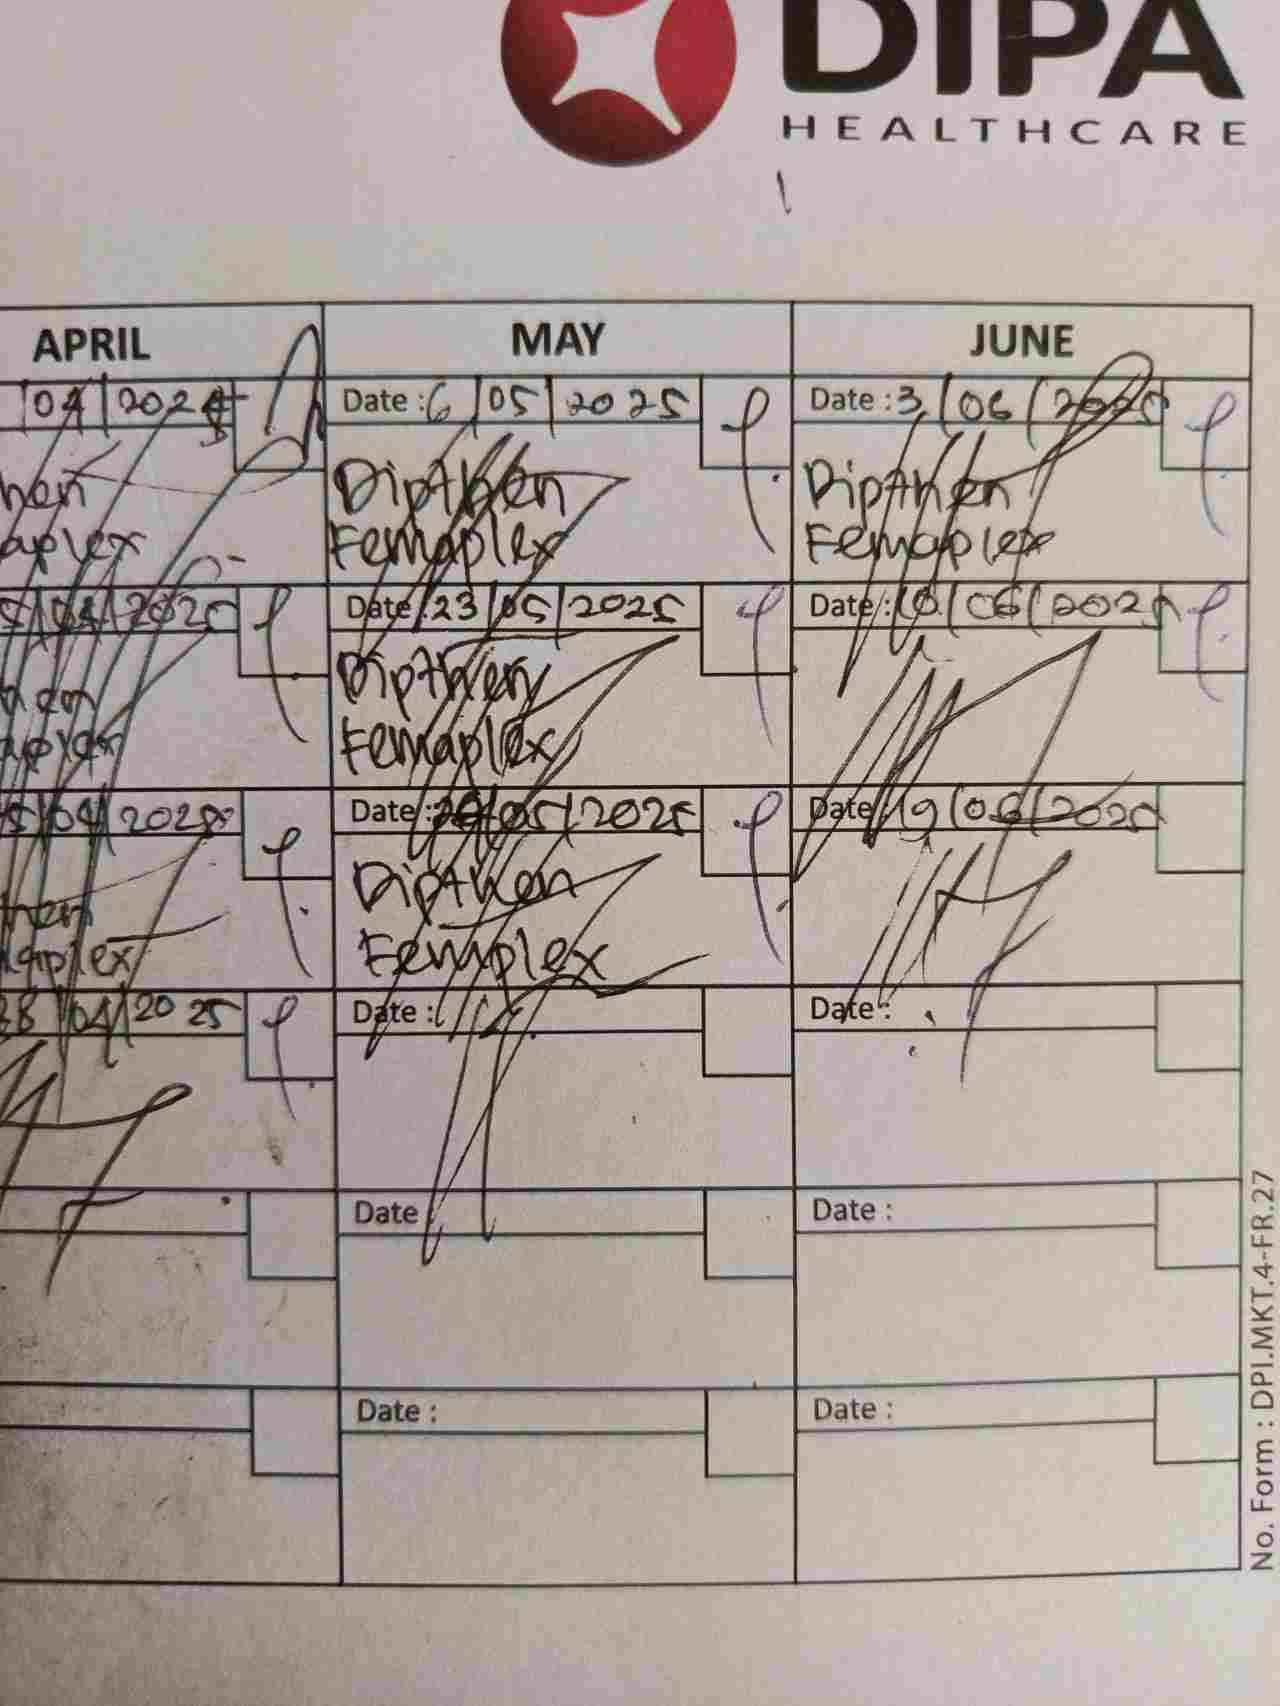 DIPA
HEALTHCARE
APRIL
MAY
JUNE
/04/2025
Date : 6/05/2025
Date : 3/06/2025
hen
Dipthen
Dipthen
aplex
Femaplex
Femaplex
5/04/2025
Date : 23/05/2025
Date : 10/06/2025
hen
Dipthen
aplex
Femaplex
5/04/2025
Date : /05/2025
Date : 19/06/2025
then
Dipthen
aplex
Femaplex
/04/2025
Date :
Date :
Date :
Date :
Date :
Date :
No. Form : DPI.MKT.4-FR.27